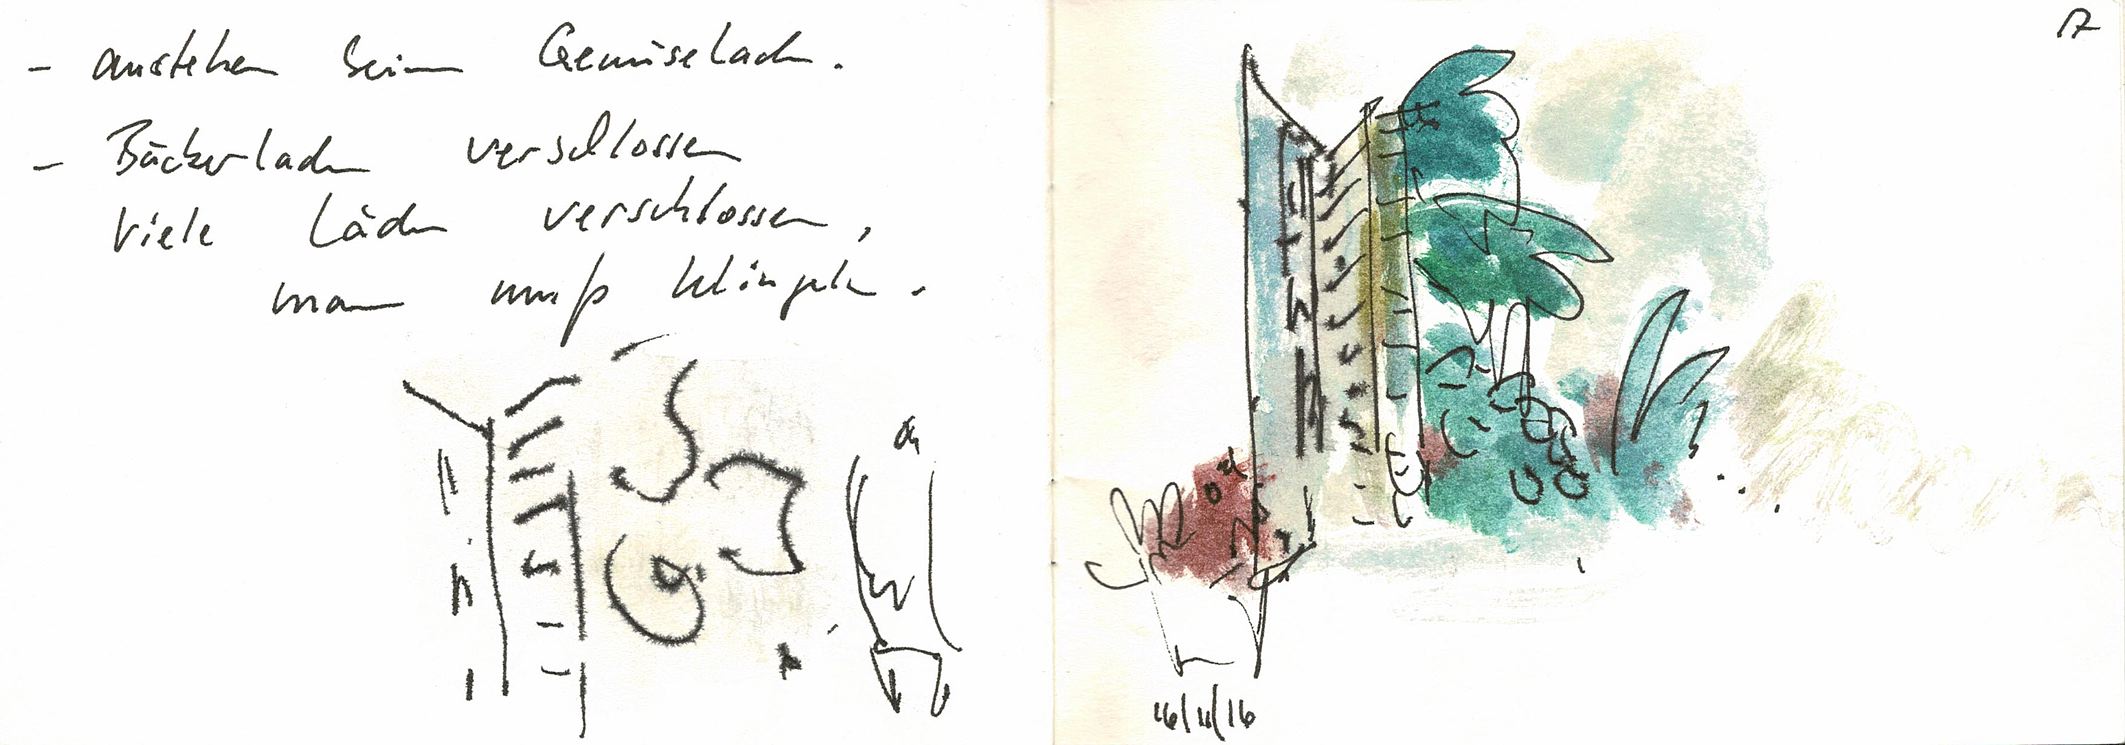 - anstehen beim Gemüseladen.
- Bäckerladen verschlossen
viele Läden verschlossen,
man muß klingeln.
17
16/11/16